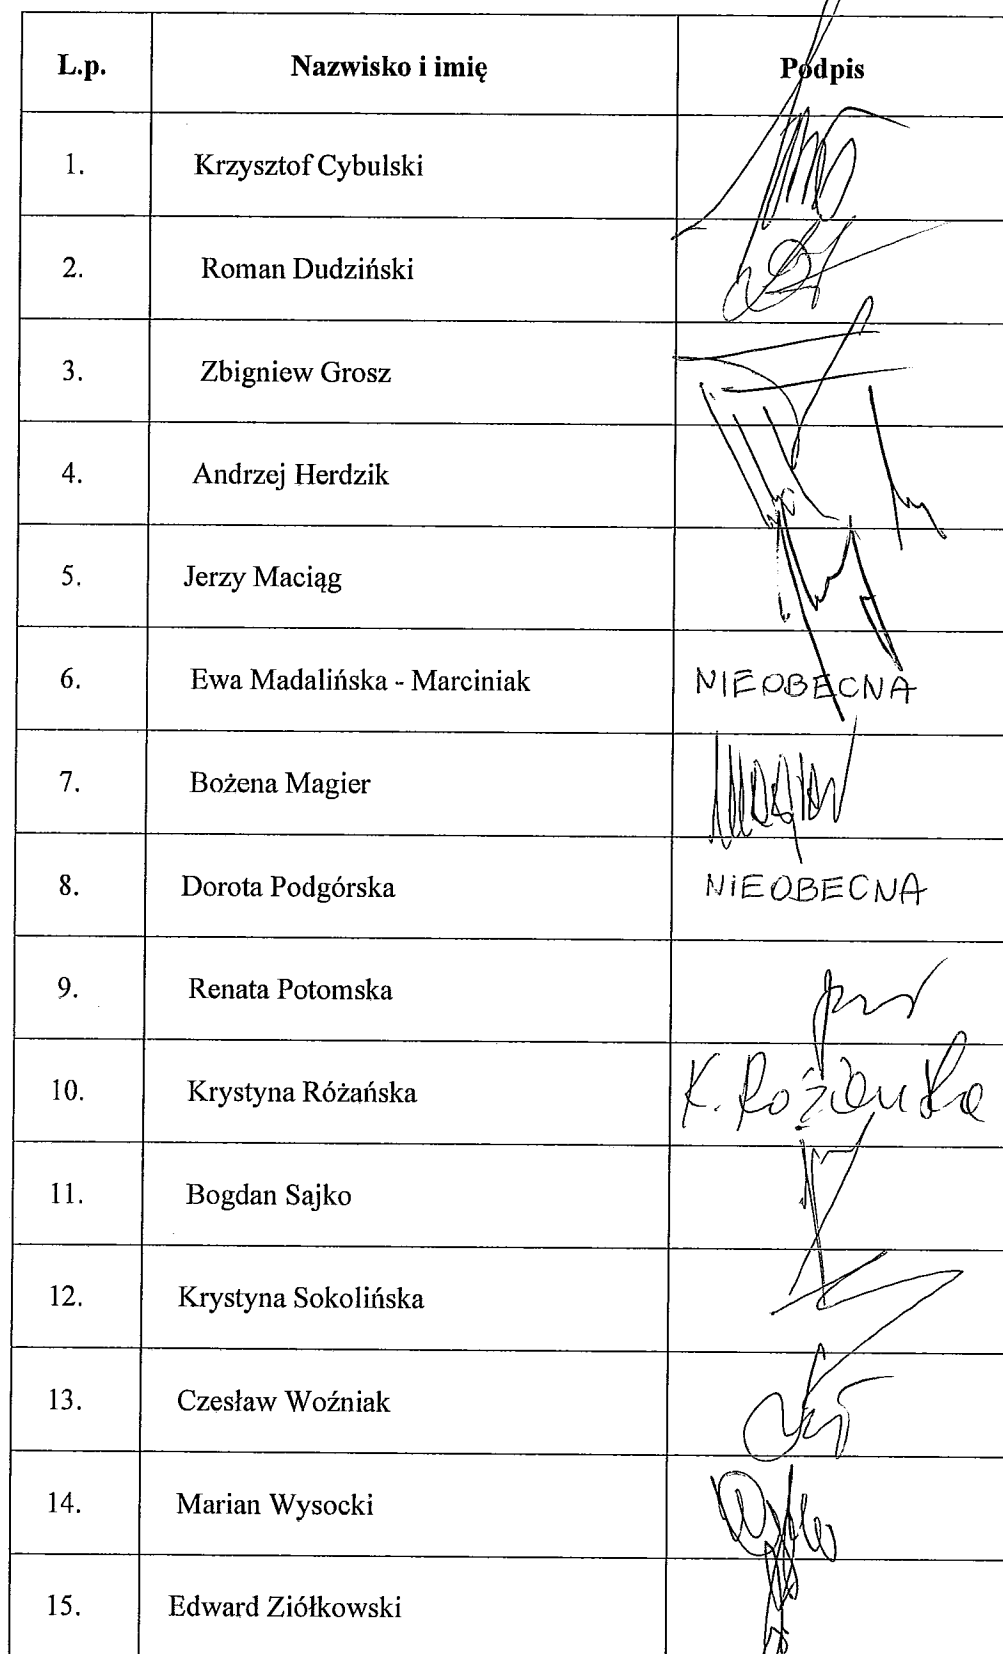 L.p. Nazwisko i imię Podpis
1. Krzysztof Cybulski
2. Roman Dudziński
3. Zbigniew Grosz
4. Andrzej Herdzik
5. Jerzy Maciąg
6. Ewa Madalińska - Marciniak NIEOBECNA
7. Bożena Magier
8. Dorota Podgórska NIEOBECNA
9. Renata Potomska
10. Krystyna Różańska K. Różańska
11. Bogdan Sajko
12. Krystyna Sokolińska
13. Czesław Woźniak
14. Marian Wysocki
15. Edward Ziółkowski